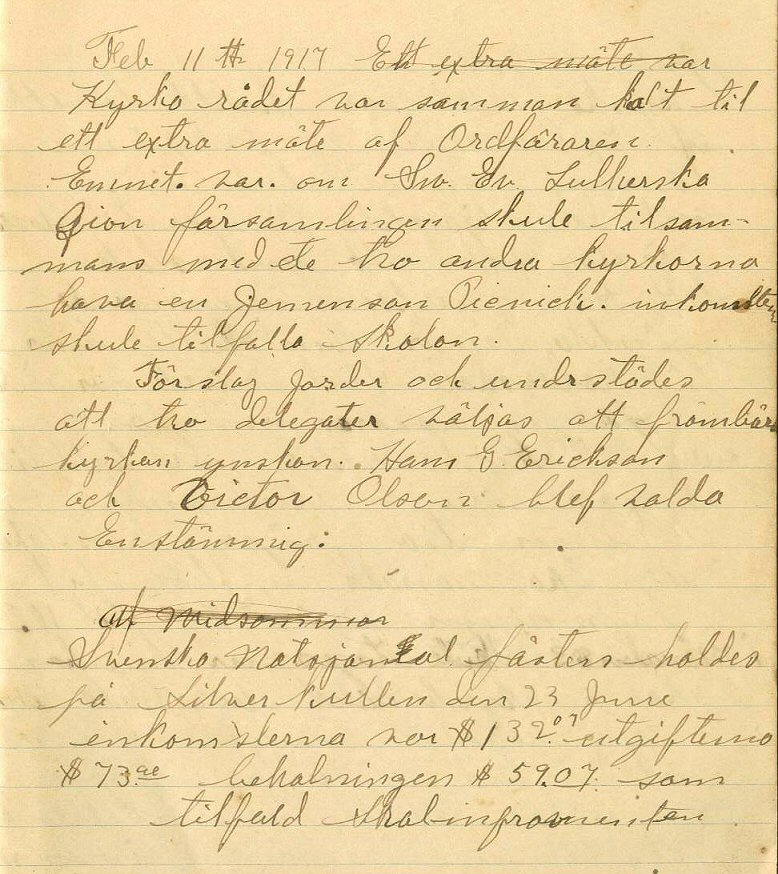 Feb 11th 1917 Ett extra mäte var
Kyrko rådet var samman kalt til
ett extra mäte af Ordfäraren.
Emnet. var. om Sv. Ev. Lutherska
Zion församlingen skule tilsam-
mans med de tvo andra kyrkorna
hava en Jemenson Picnick. inkomsten
skule tilfalla skolan.
Förslag jorder och undrstödes
att tvo delegater väljas att frambära
kyrkan ynskan. Hans G. Erickson
och Victor Olson blef valda
Enstämmig:
af Midsommar
Svenska Natsjonal fästen holdes
på Silver kullen den 23 June
inkomsterna var $132.07 utgifterna
$73.00 behalningen $59.07. som
tilfald Skol